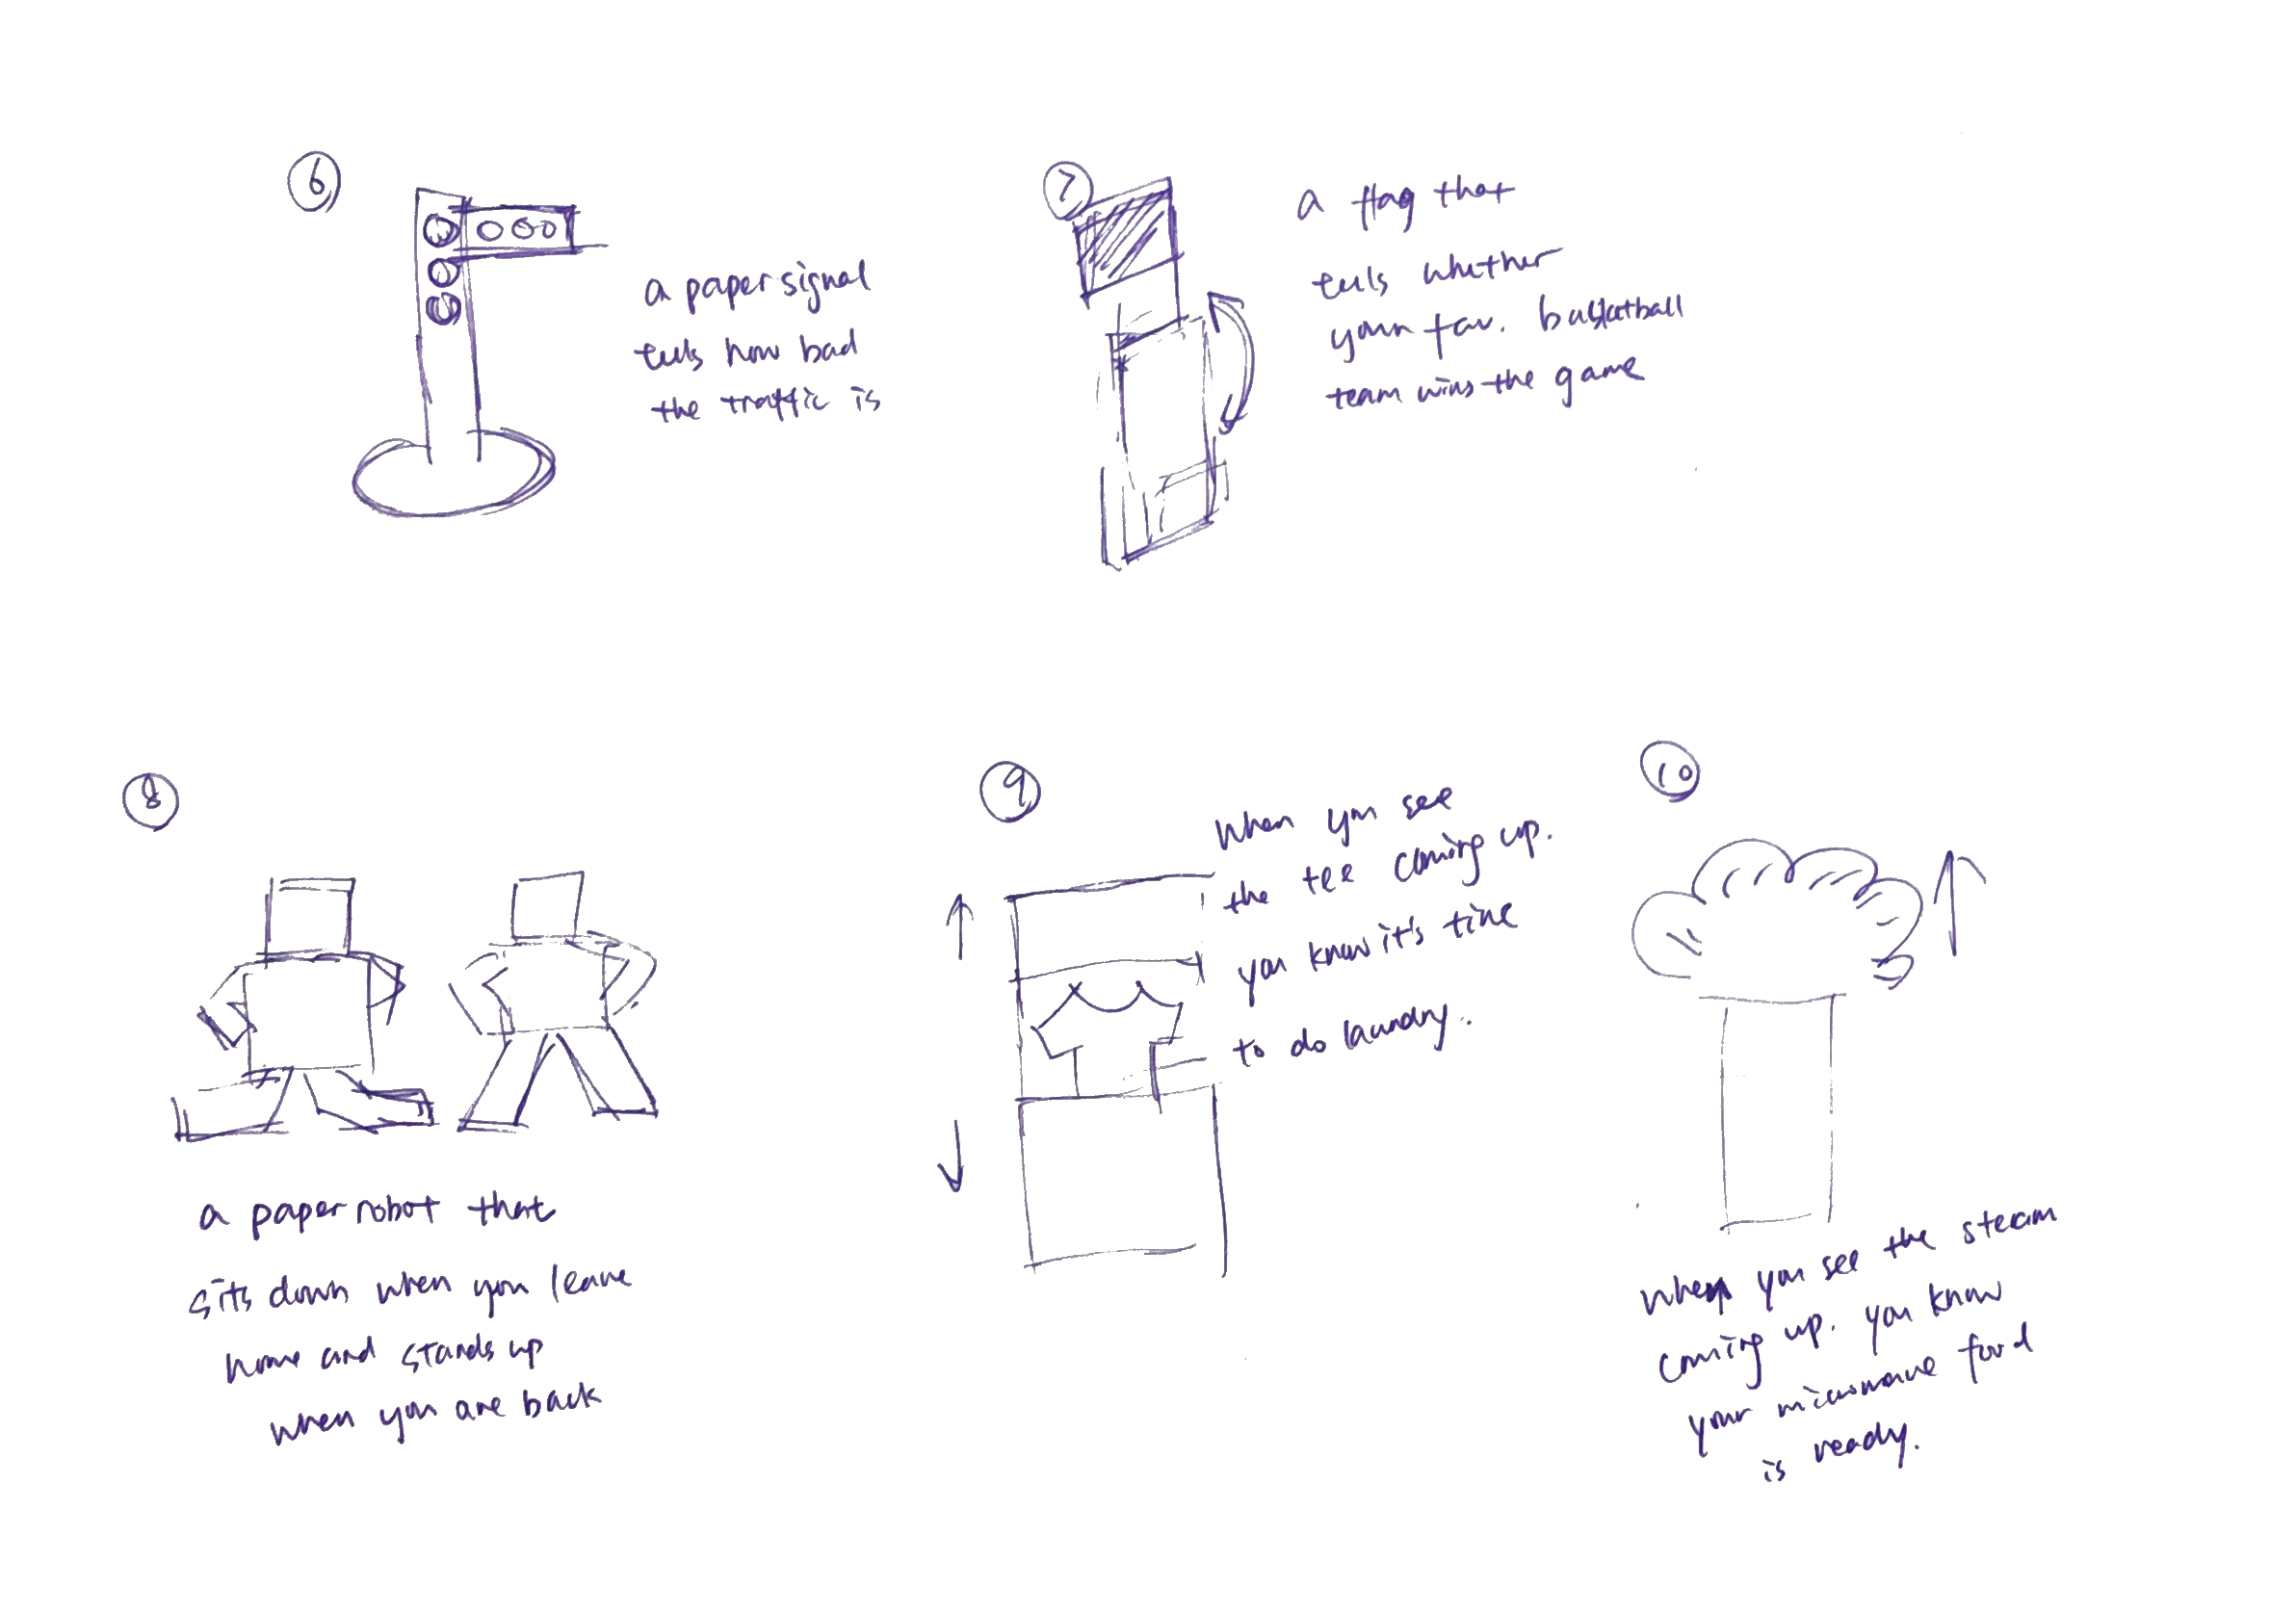 6
a paper signal
tells how bad
the traffic is
7
a flag that
tells whether
your fav. basketball
team wins the game
8
a paper robot that
sits down when you leave
home and stands up
when you are back
9
When you see
the tee coming up.
you know it's time
to do laundry.
10
When you see the steam
coming up. you know
your microwave food
is ready.